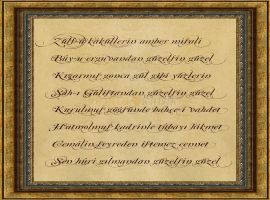 Zülf-ü kâküllerin amber misali
Bûy-u erguvandan güzelsin güzel
Kızarmış gonca gül gibi yüzlerin
Şâh-ı Gülistandan güzelsin güzel
Kurulmuş göğsünde bahçe-i vahdet
Hatmolmuş kadrinle tûbayı hikmet
Cemâlin seyreden istemez cennet
Sen hûri gılmandan güzelsin güzel